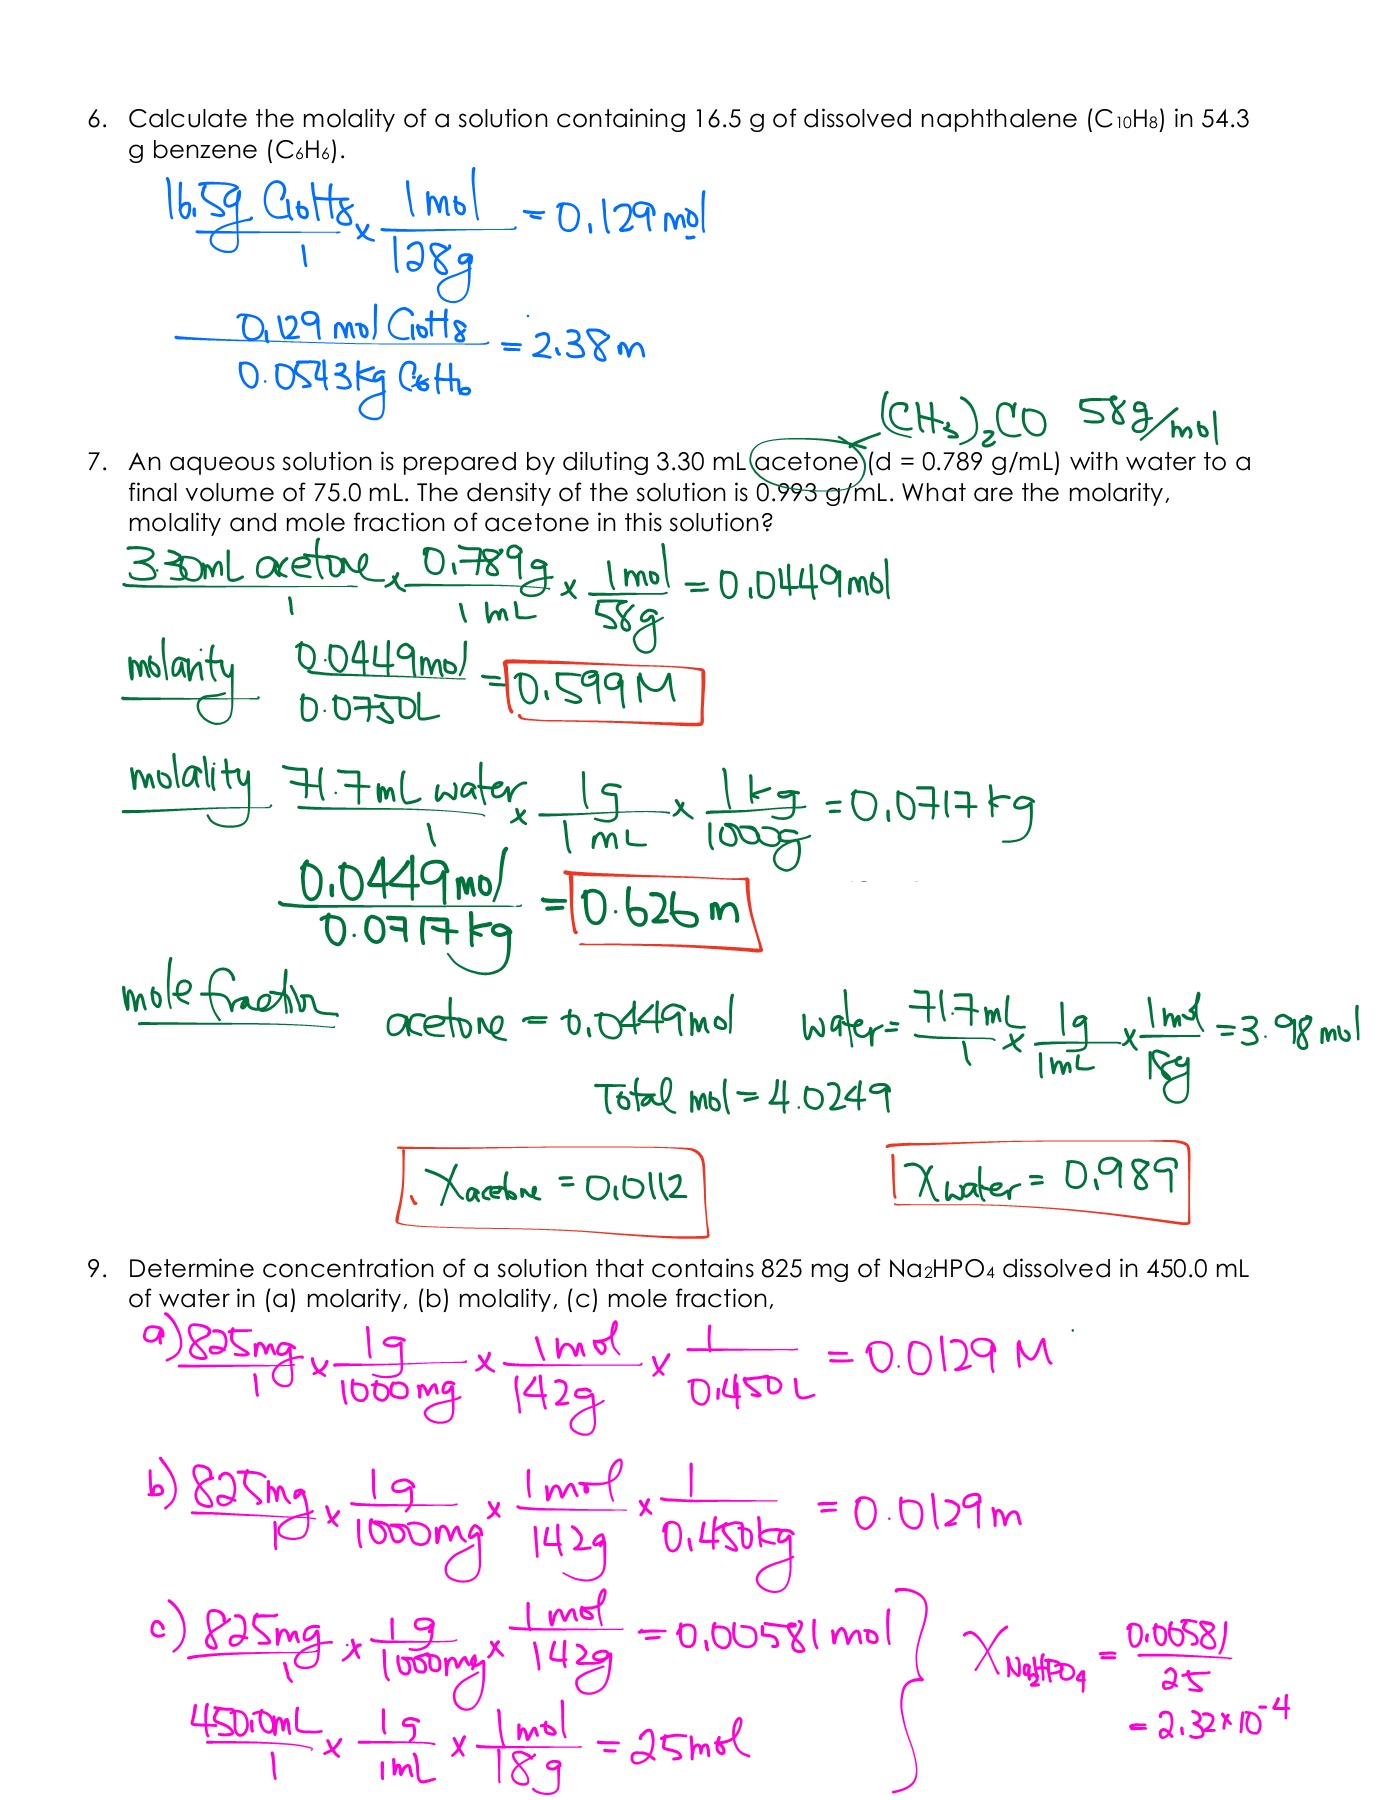 6. Calculate the molality of a solution containing 16.5 g of dissolved naphthalene (C10H8) in 54.3
g benzene (C6H6).
16.5g C10H8/1 x 1 mol/128g = 0.129 mol
0.129 mol C10H8/0.0543kg C6H6 = 2.38 m
(CH3)2CO 58g/mol
7. An aqueous solution is prepared by diluting 3.30 mL acetone (d = 0.789 g/mL) with water to a
final volume of 75.0 mL. The density of the solution is 0.993 g/mL. What are the molarity,
molality and mole fraction of acetone in this solution?
3.30mL acetone/1 x 0.789g/1 mL x 1 mol/58g = 0.0449 mol
molarity 0.0449 mol/0.0750L = 0.599 M
molality 71.7 mL water/1 x 1g/1 mL x 1 kg/1000g = 0.0717 kg
0.0449 mol/0.0717 kg = 0.626 m
mole fraction acetone = 0.0449 mol water = 71.7 mL/1 x 1g/1mL x 1 mol/18g = 3.98 mol
Total mol = 4.0249
Xacetone = 0.0112 Xwater = 0.989
9. Determine concentration of a solution that contains 825 mg of Na2HPO4 dissolved in 450.0 mL
of water in (a) molarity, (b) molality, (c) mole fraction,
a) 825mg/1 x 1g/1000mg x 1 mol/142g x 1/0.450 L = 0.0129 M
b) 825mg/1 x 1g/1000mg x 1 mol/142g x 1/0.450kg = 0.0129 m
c) 825mg/1 x 1g/1000mg x 1 mol/142g = 0.00581 mol
XNa2HPO4 = 0.00581/25
= 2.32 x 10-4
450.0mL/1 x 1g/1mL x 1 mol/18g = 25 mol